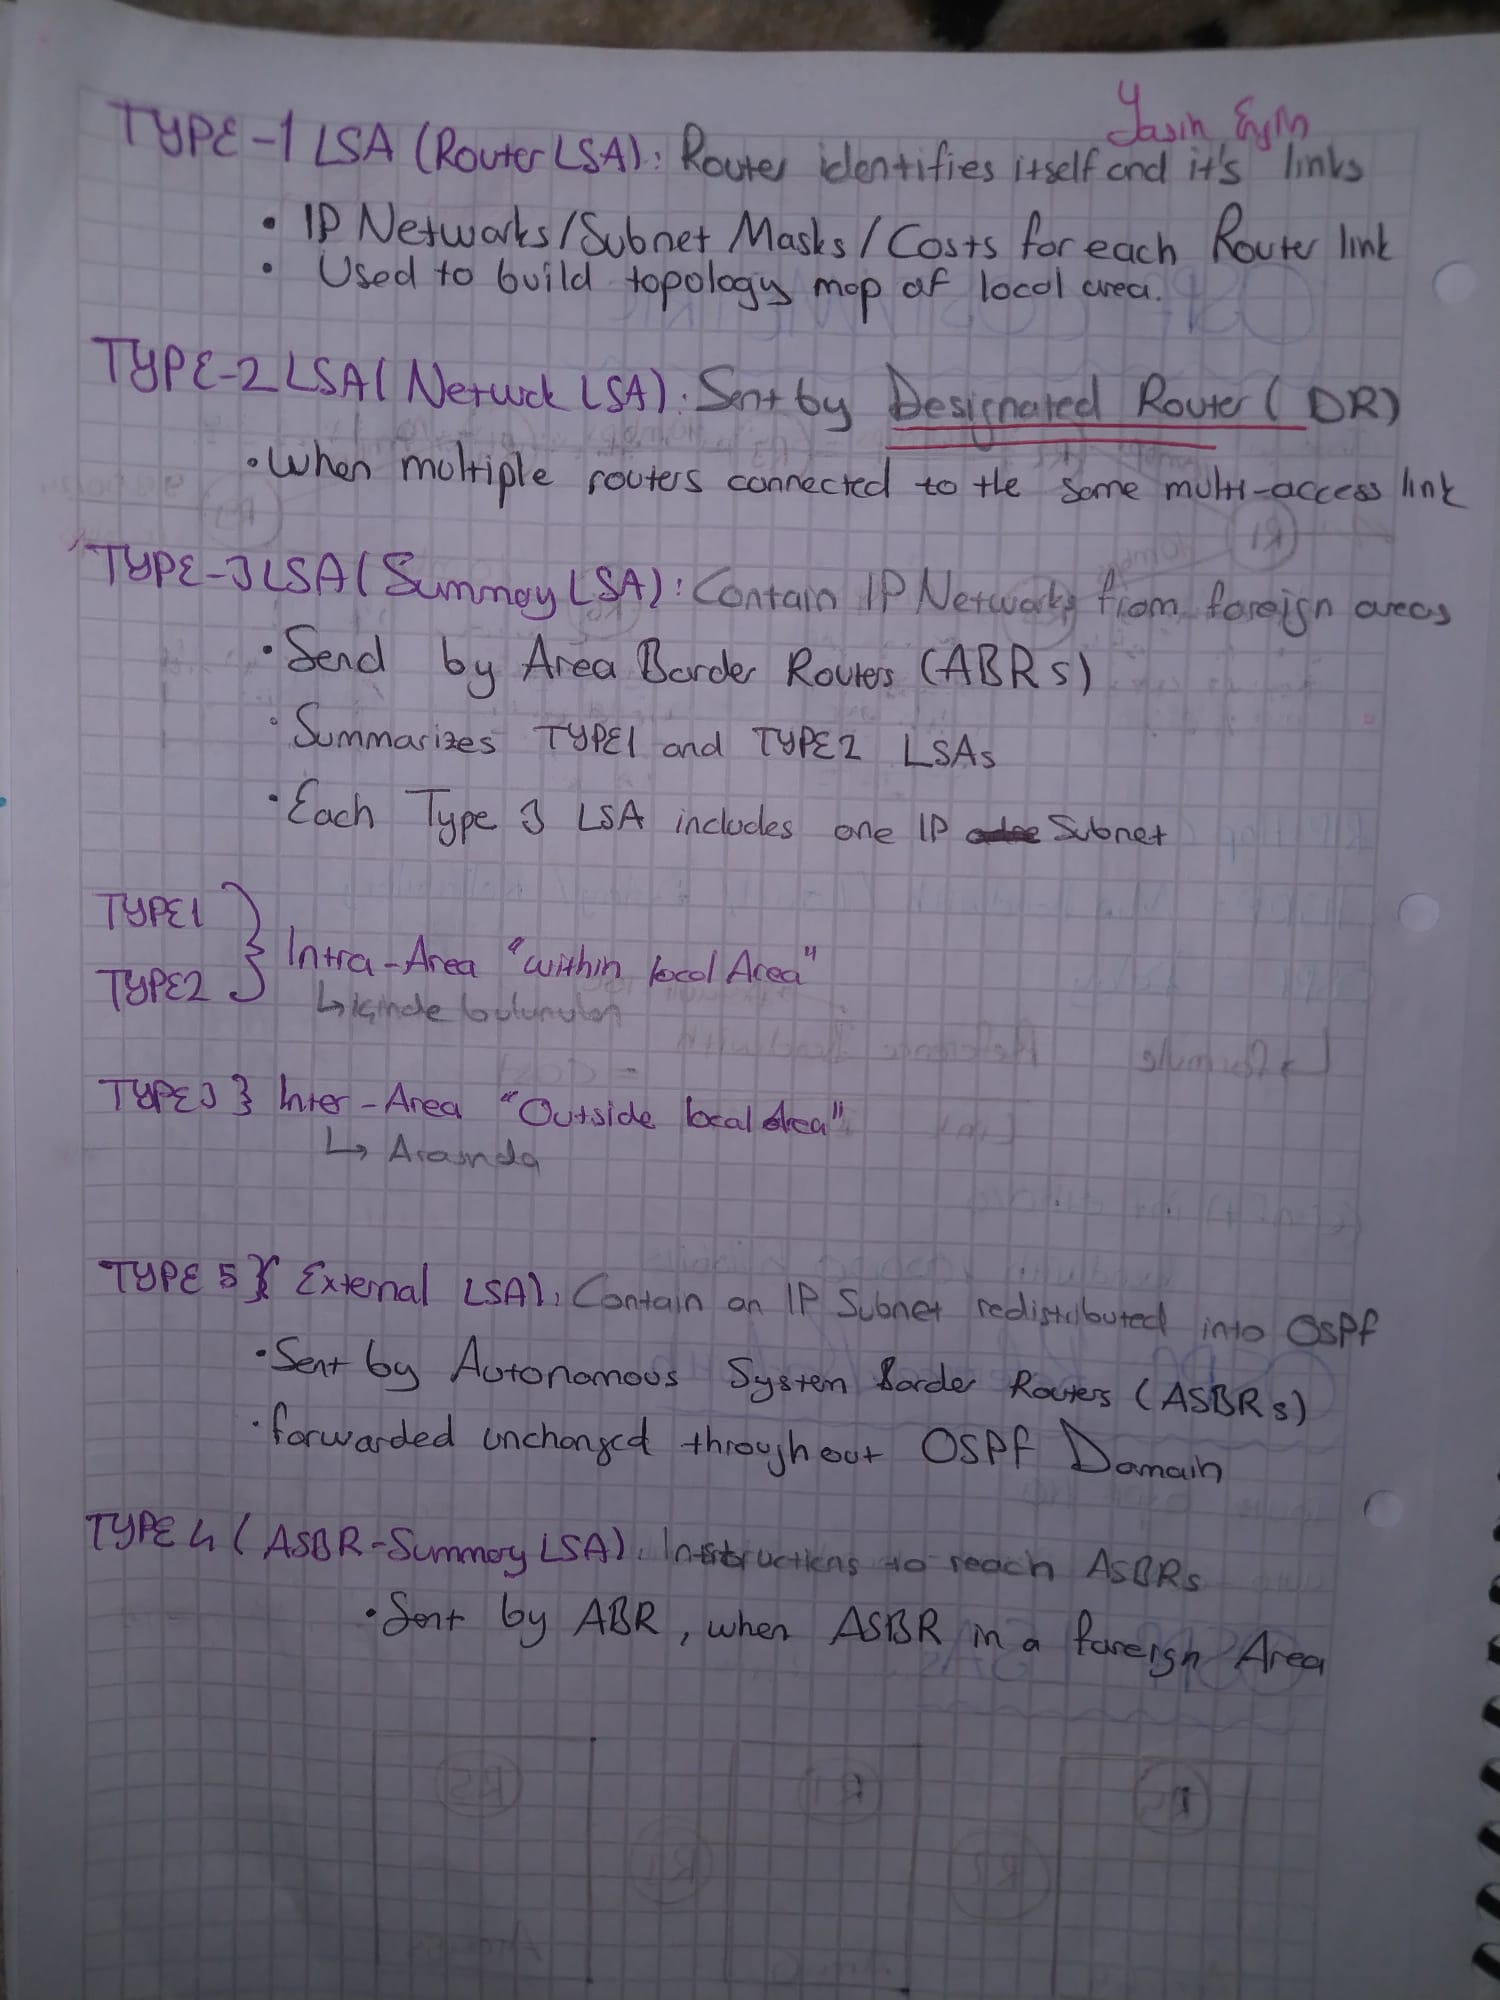 Yasin
TYPE-1 LSA (Router LSA): Router identifies itself and it's links
• IP Networks/Subnet Masks/Costs for each Router link
• Used to build topology map of local area.
TYPE-2 LSA (Network LSA): Sent by Designated Router (DR)
• When multiple routers connected to the same multi-access link
TYPE-3 LSA (Summary LSA): Contain IP Networks from foreign areas
• Send by Area Border Routers (ABRs)
• Summarizes TYPE1 and TYPE2 LSAs
• Each Type 3 LSA includes one IP Subnet
TYPE1
TYPE2 } Intra-Area "within local Area"
↳ içinde bulunulan
TYPE3 } Inter-Area "Outside local Area"
↳ Arasında
TYPE 5 ( External LSA): Contain an IP Subnet redistributed into OSPF
• Sent by Autonomous System Border Routers (ASBRs)
• forwarded unchanged throughout OSPF Domain
TYPE 4 (ASBR-Summary LSA): Instructions to reach ASBRs
• Sent by ABR, when ASBR in a foreign Area